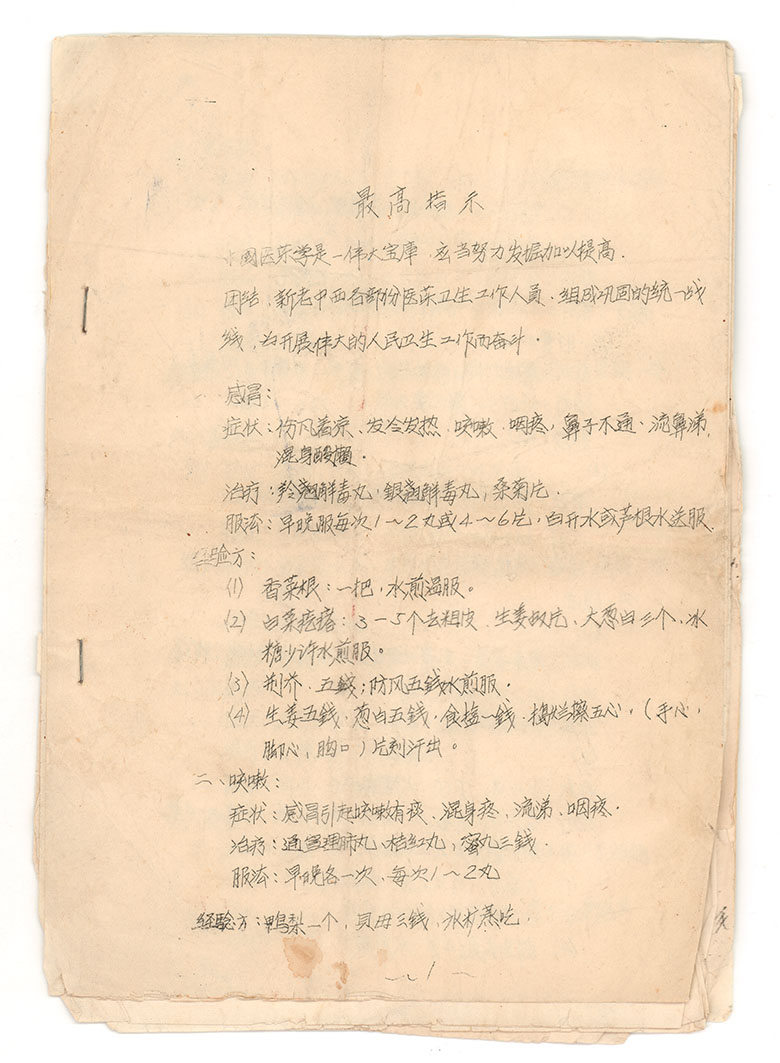 最高指示
中國医药学是一伟大宝庫．应当努力发掘加以提高．
团结、新老中西各部份医药卫生工作人员．组成巩固的统一战
线，为开展伟大的人民卫生工作而奋斗．
一、感冒：
症状：伤风着凉、发冷发热、咳嗽、咽疼，鼻子不通、流鼻涕、
混身酸懒．
治疗：羚翘解毒丸，銀翘解毒丸，桑菊片．
服法：早晚服每次1～2丸或4～6片，白开水或芦根水送服．
经验方：
(1) 香菜根：一把，水煎温服。
(2) 白菜疙瘩：3－5个去粗皮、生姜 片、大葱白三个、冰
糖少许水煎服。
(3) 荆芥．五錢；防风五錢水煎服．
(4) 生姜五錢．葱白五錢，食塩一錢．搗烂擦五心，（手心，
脚心，胸口）片刻汗出。
二、咳嗽：
症状：感冒引起咳嗽有痰、混身疼、流涕、咽疼．
治疗：通宣理肺丸、桔红丸，蜜丸三錢．
服法：早晚各一次、每次1～2丸
经驗方：鸭梨一个，貝母三錢、冰糖蒸吃．
1